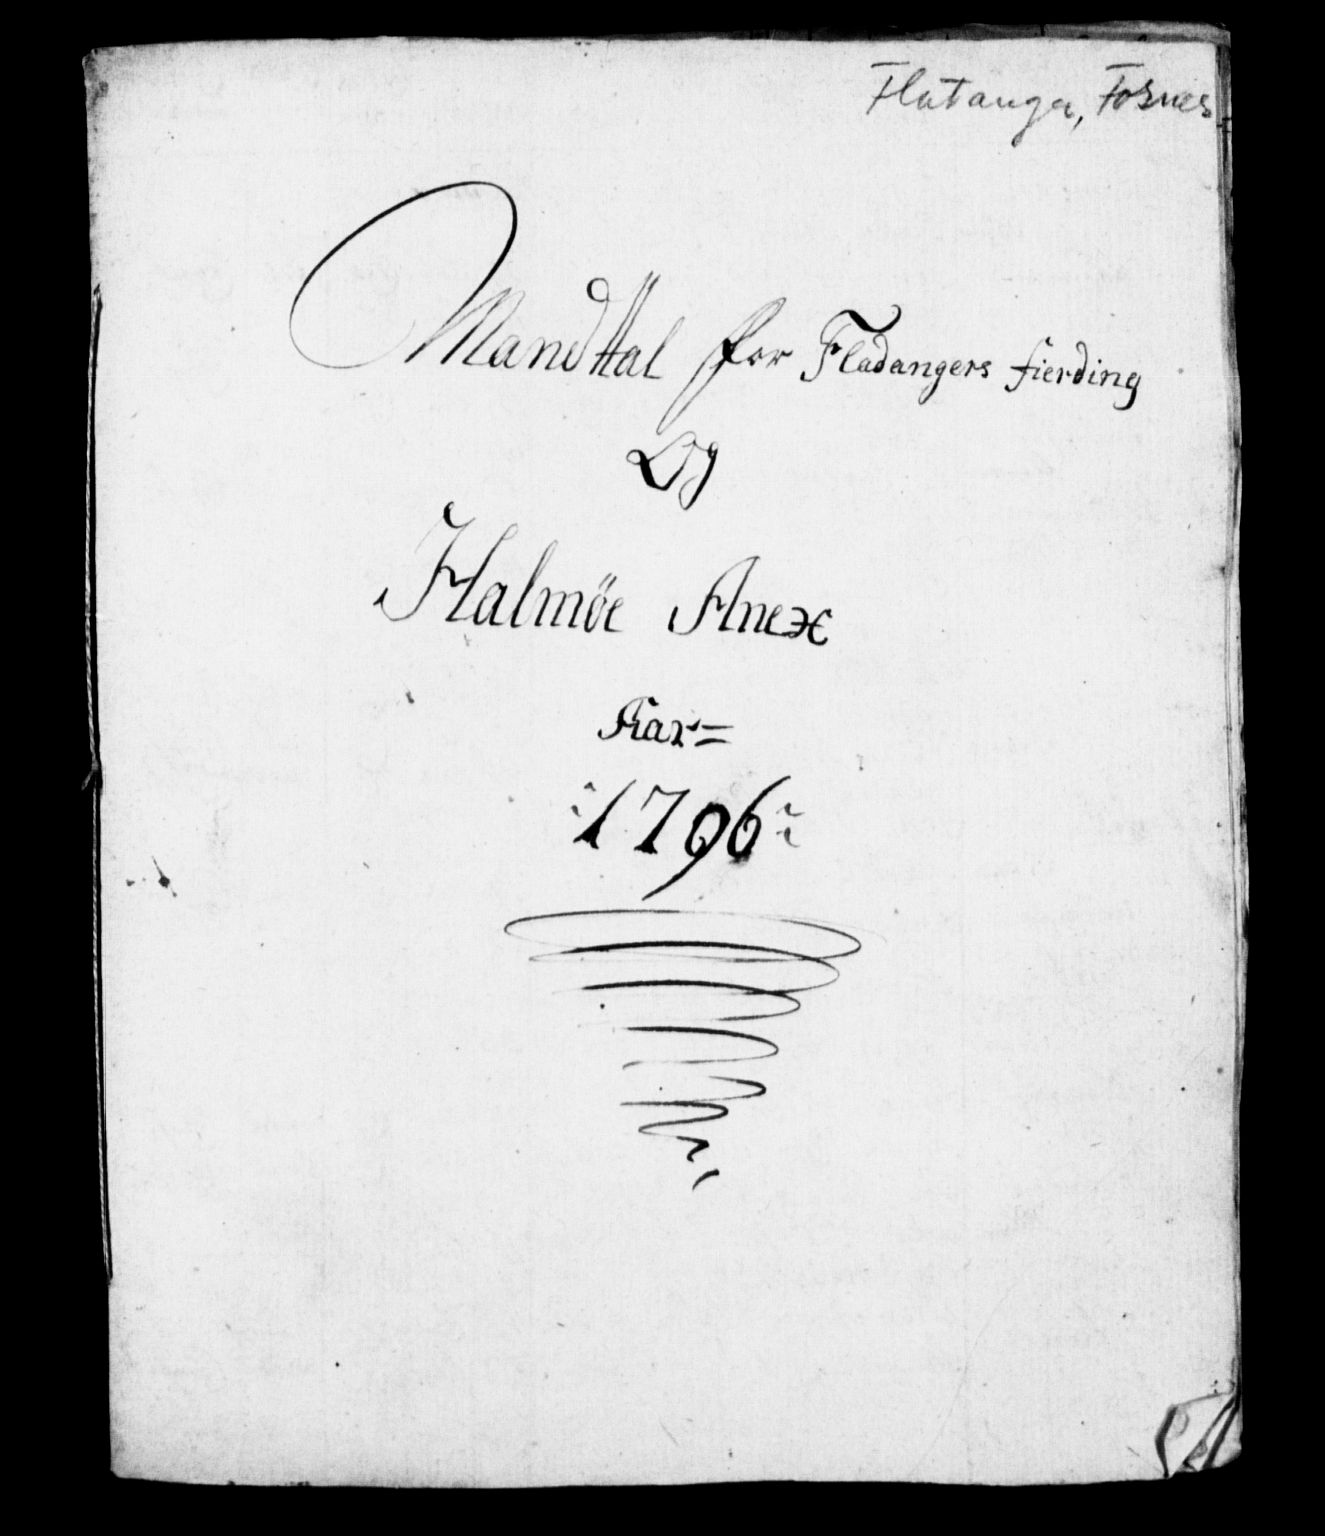 Flatanger, Fosnes
Mandttal for Fladangers fierding
Og
Halmöe Anex
Aar=
1796